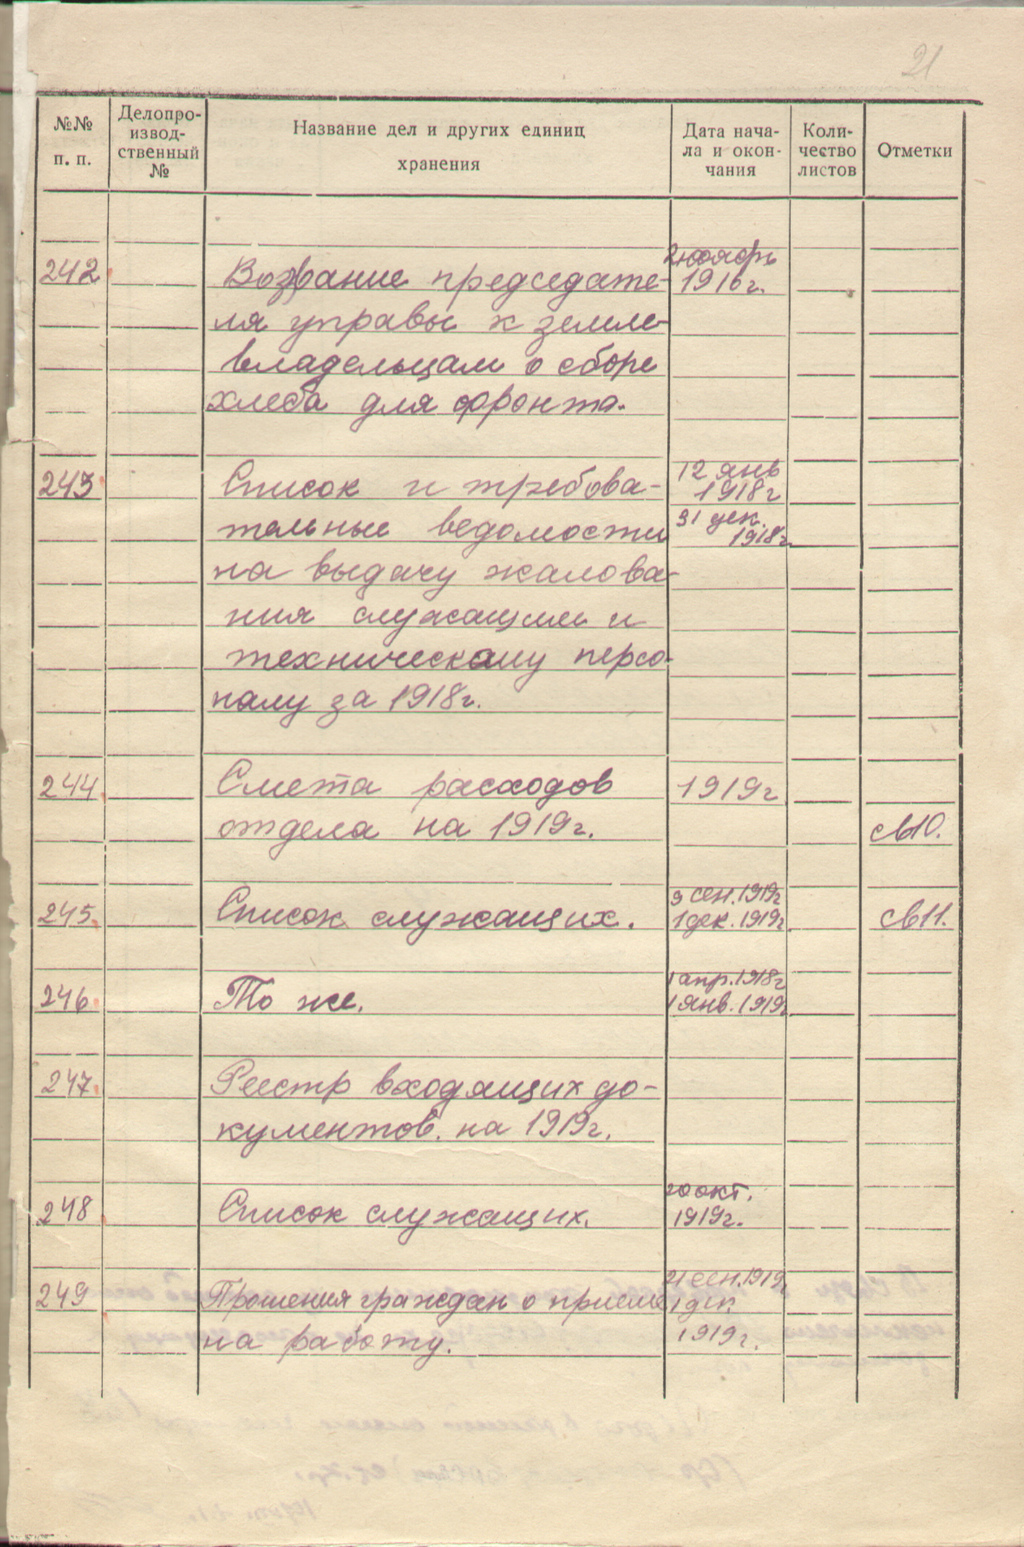 21
№№ п. п.
Делопро-
извод-
ственный
№
Название дел и других единиц
хранения
Дата нача-
ла и окон-
чания
Коли-
чество
листов
Отметки
242 Воззвание председате- ноябрь 1916 г.
ля управы к земле-
владельцам о сборе
хлеба для фронта.
243 Список и требова- 12 янв 1918 г
тельные ведомости 31 дек. 1918 г.
на выдачу жалова-
ния служащим и
техническому персо-
налу за 1918 г.
244 Смета расходов 1919 г
отдела на 1919 г. св10.
245 Список служащих. 9 сен. 1919 г 1 дек. 1919 г. св11.
246 То же. 1 апр. 1918 г 1 янв. 1919 г
247 Реестр входящих до-
кументов. на 1919 г.
248 Список служащих. 20 окт. 1919 г.
249 Прошения граждан о приеме 21 сен. 1919 г. 1 дек
на работу. 1919 г.